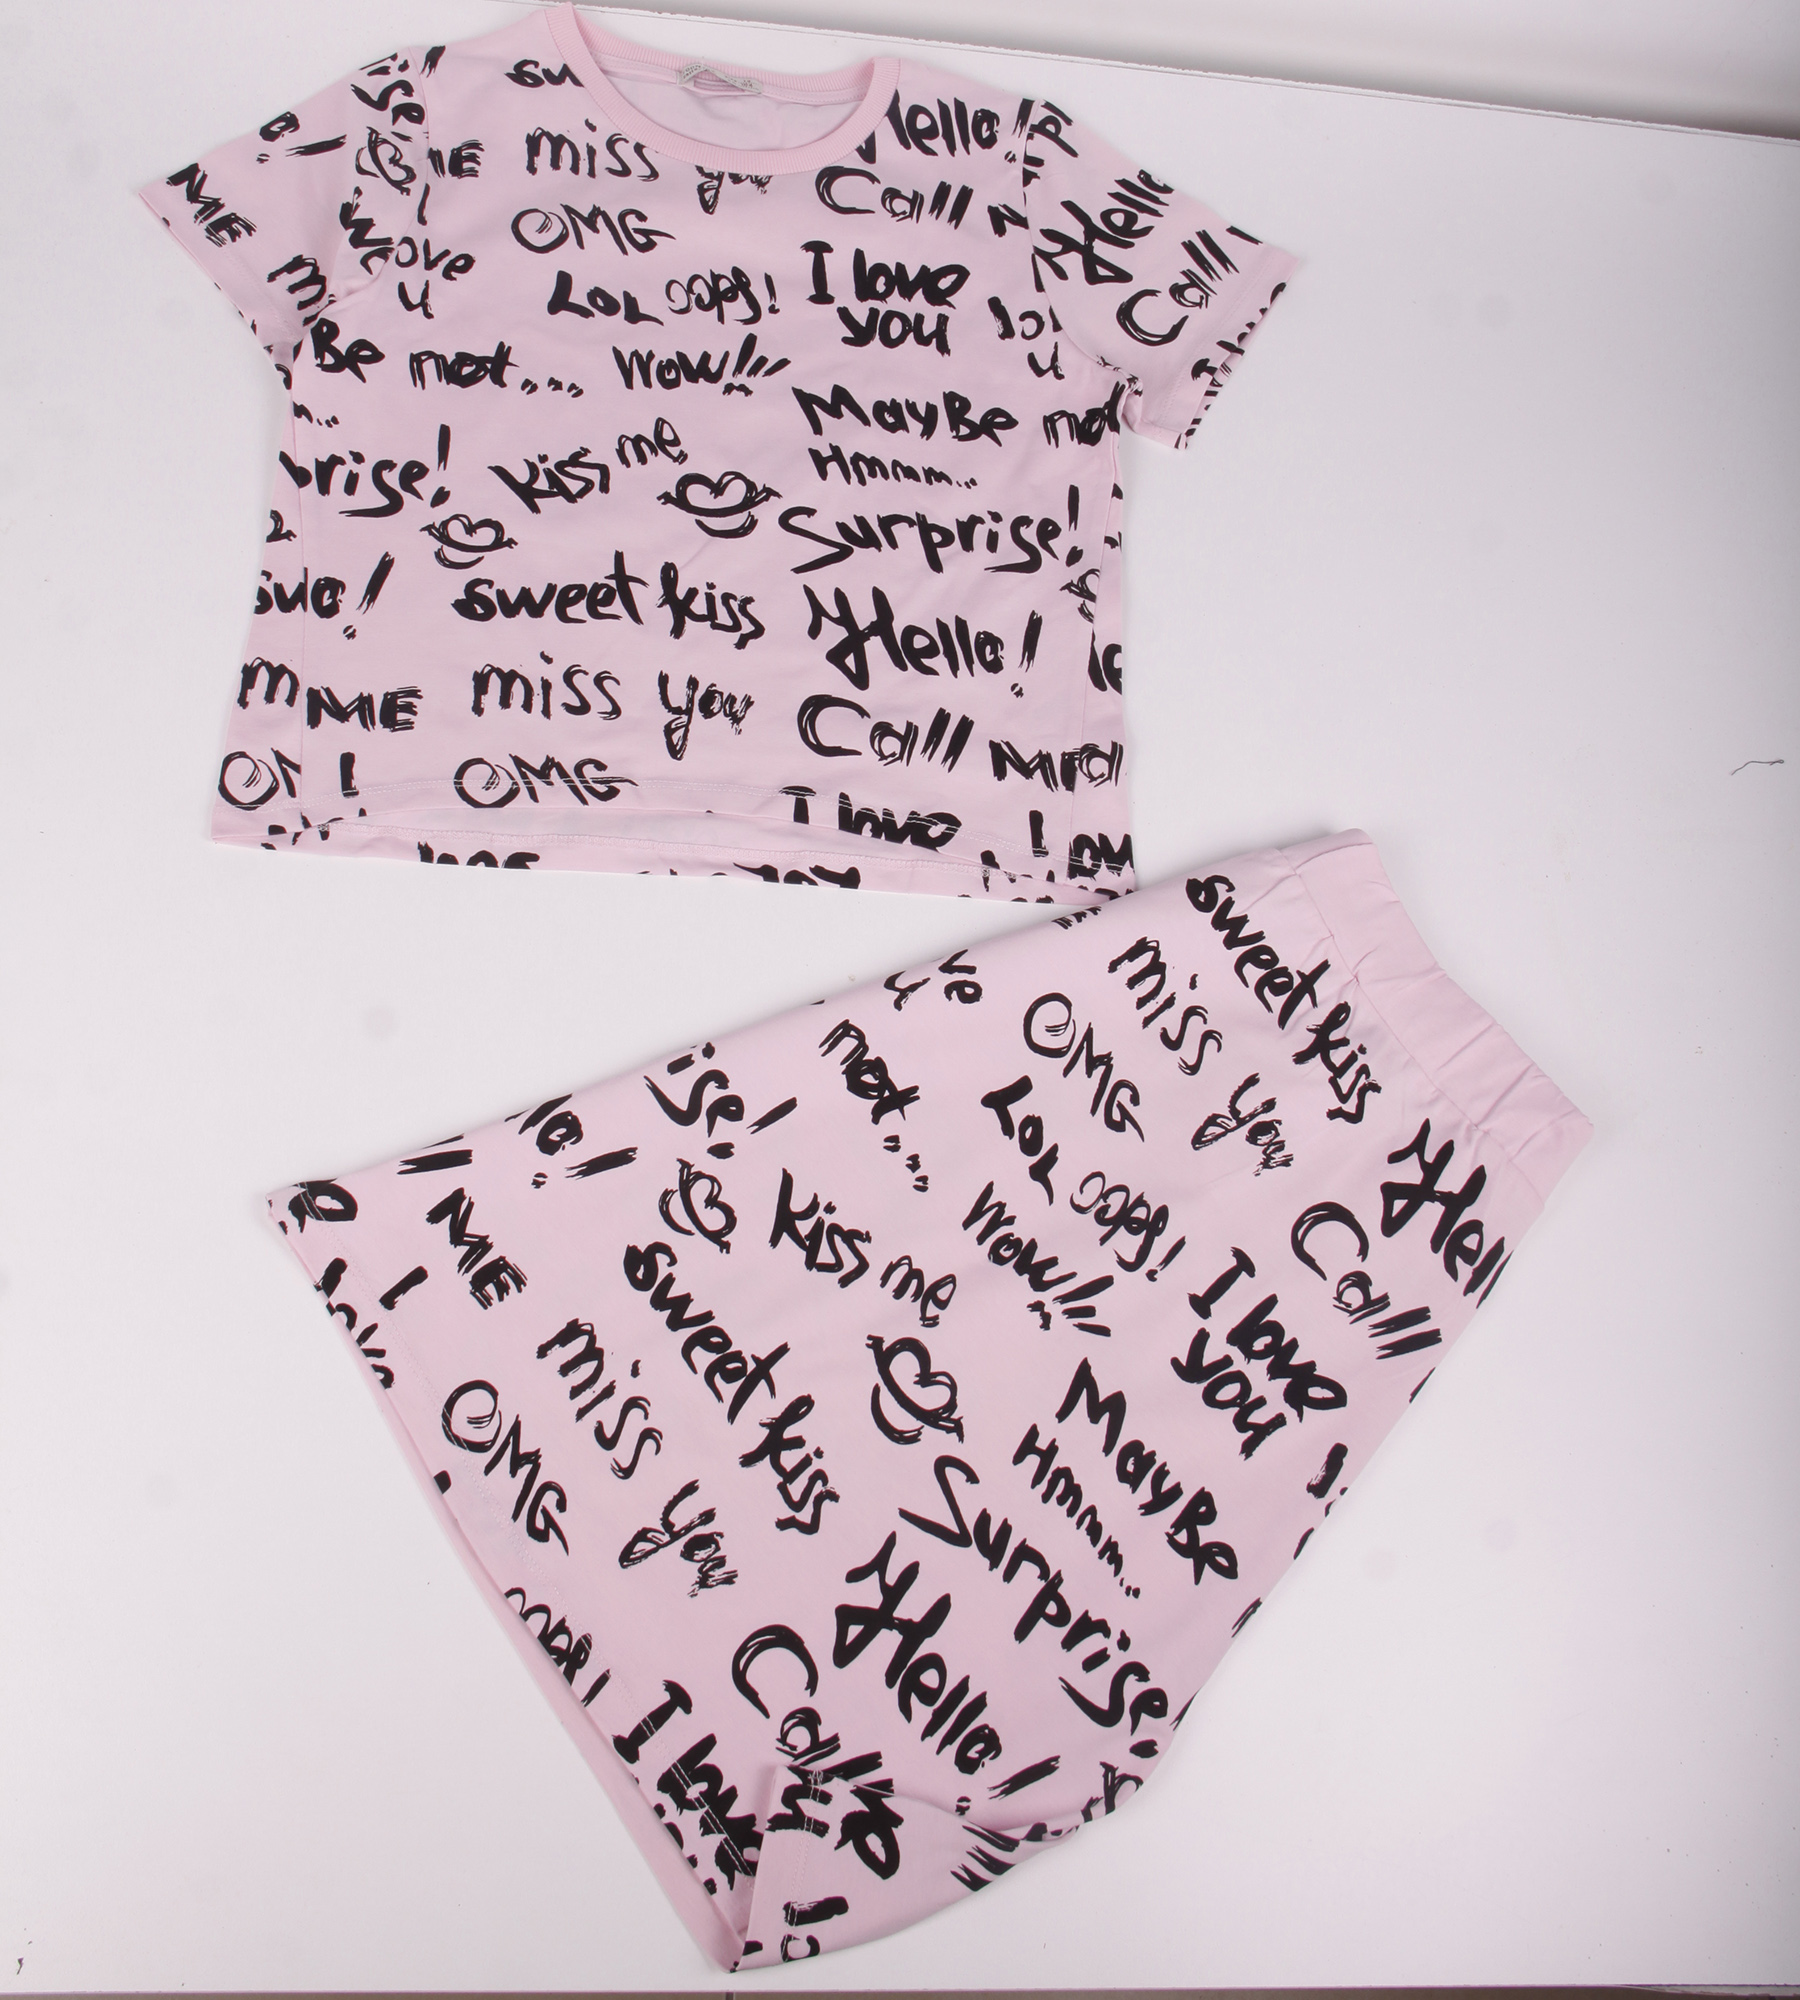 miss you
Hello!
ME
OMG
Call
ove
u
LOL oops!
I love
you
Be not...
wow!!!
MayBe not
Hmmm...
prise!
Kiss me
Surprise!
sweet kiss
Hello!
ME
miss you
Call
OMG
I love
Hello
Call
ME
sweet kiss
miss you
OMG
LOL oops!
Hell
Call
I love
you
not...
wow!!!
MayBe
Hmmm...
ise!
Kiss me
Surprise!
sweet kiss
Hello!
ME
miss you
Call
OMG
I love